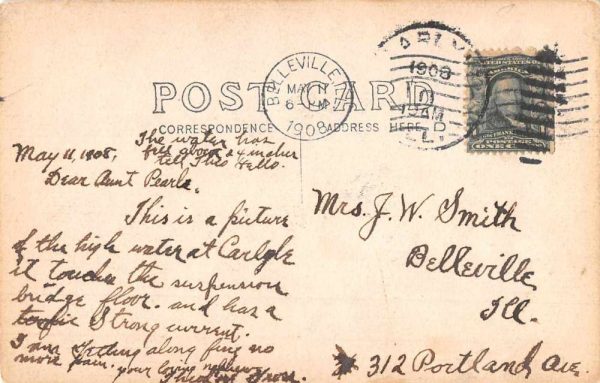 POST CARD
CORRESPONDENCE
ADDRESS HERE
BELLEVILLE
MAY 11
6 PM
1908
1908
UNITED STATES OF AMERICA
FRANKLIN
POSTAGE
ONE
The water has
fell about 4 inches
tell Theo Hello.
May 11, 1908,
Dear Aunt Pearle.
This is a picture
of the high water at Carlyle
it touches the suspension
bridge floor. and has a
Strong current.
I am getting along fine no
more pain. your loving nephew
Mrs. J. W. Smith
Belleville
Ill.
312 Portland Ave.